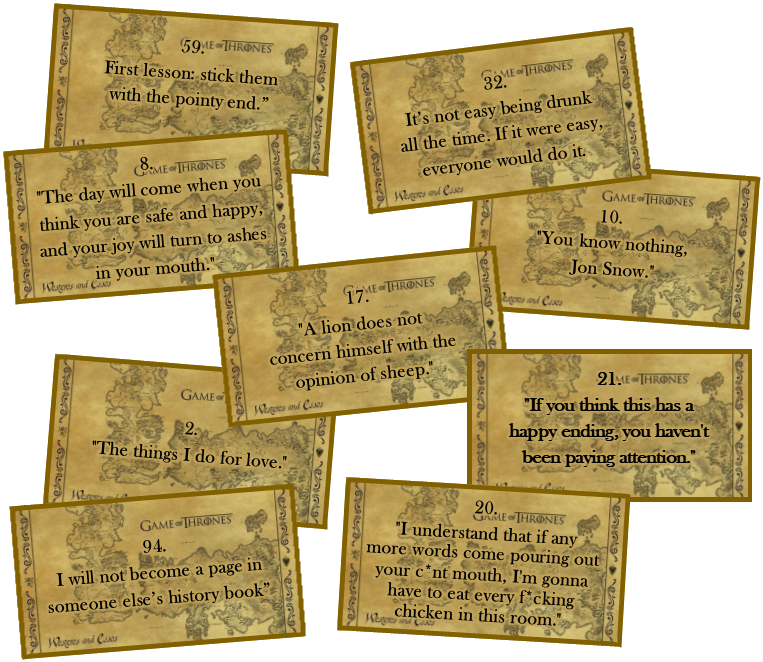 59.
GAME OF THRONES
First lesson: stick them
with the pointy end.”
32.
GAME OF THRONES
It’s not easy being drunk
all the time. If it were easy,
everyone would do it.
Westeros and Essos
8.
GAME OF THRONES
"The day will come when you
think you are safe and happy,
and your joy will turn to ashes
in your mouth."
Westeros and Essos
GAME OF THRONES
10.
"You know nothing,
Jon Snow."
Essos
17.
GAME OF THRONES
"A lion does not
concern himself with the
opinion of sheep."
Westeros and Essos
GAME
2.
"The things I do for love."
21.
GAME OF THRONES
"If you think this has a
happy ending, you haven't
been paying attention."
GAME OF THRONES
94.
I will not become a page in
someone else’s history book”
Westeros and Essos
20.
GAME OF THRONES
"I understand that if any
more words come pouring out
your c*nt mouth, I'm gonna
have to eat every f*cking
chicken in this room."